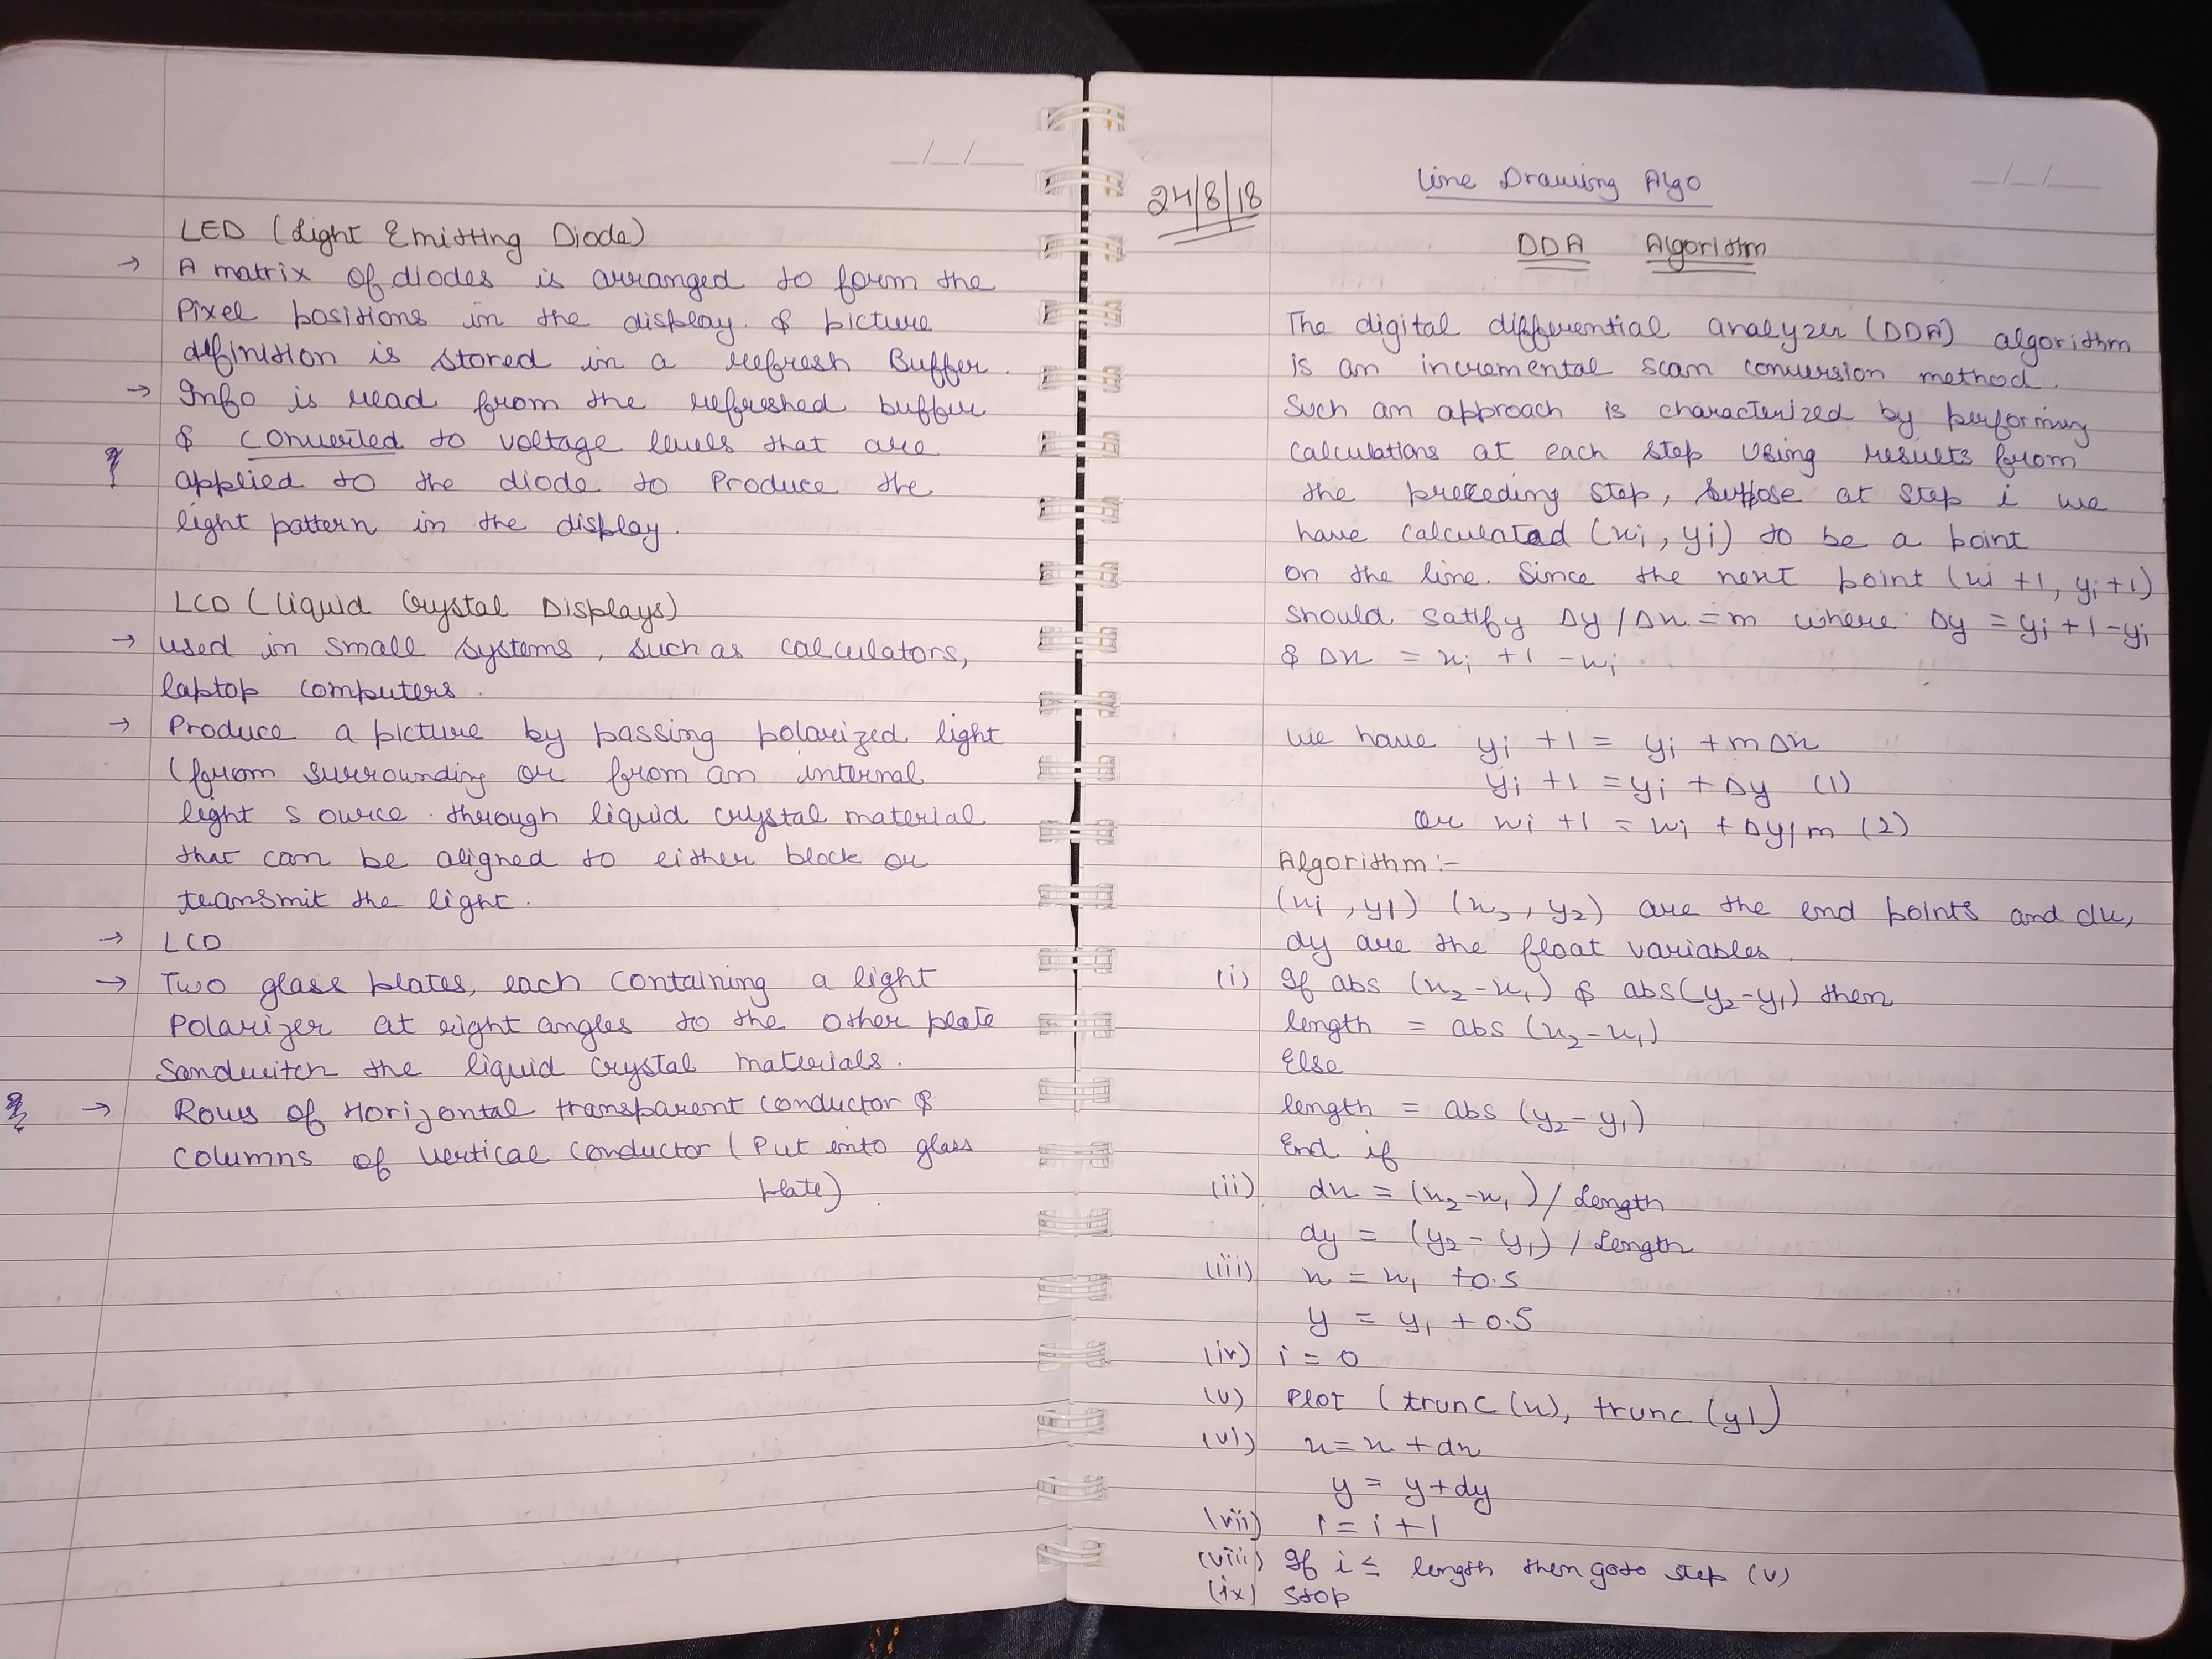 LED (Light Emitting Diode)
→ A matrix of diodes is arranged to form the
Pixel positions in the display. & picture
definition is stored in a refresh Buffer.
→ Info is read from the refreshed buffer
& converted to voltage levels that are
applied to the diode to Produce the
light pattern in the display.
LCD (Liquid Crystal Displays)
→ used in small systems, such as calculators,
laptop computers.
→ Produce a picture by passing polarized light
(from surrounding or from an internal
light source through liquid crystal material
that can be aligned to either block or
transmit the light.
→ LCD
→ Two glass plates, each containing a light
Polarizer at right angles to the other plate
Sandwitch the liquid crystal materials.
→ Rows of Horizontal transparent conductor &
columns of vertical conductor (Put into glass
plate)
24/8/18
Line Drawing Algo
DDA Algorithm
The digital differential analyzer (DDA) algorithm
is an incremental scan conversion method.
Such an approach is characterized by performing
calculations at each step using results from
the preceding step, Suppose at step i we
have calculated (xi, yi) to be a point
on the line. Since the next point (xi +1, yi+1)
should satify Δy/Δx = m where Δy = yi+1-yi
& Δx = xi +1 -xi
we have yi +1 = yi + mΔx
yi +1 = yi + Δy (1)
or xi +1 = xi + Δy/m (2)
Algorithm:-
(xi, y1) (x2, y2) are the end points and dx,
dy are the float variables.
(i) If abs (x2-x1) & abs(y2-y1) then
length = abs (x2-x1)
Else
length = abs (y2-y1)
End if
(ii) dx = (x2-x1) / Length
dy = (y2-y1) / Length
(iii) x = x1 +0.5
y = y1 +0.5
(iv) i = 0
(v) Plot (trunc(x), trunc(y))
(vi) x = x + dx
y = y+dy
(vii) i = i+1
(viii) If i ≤ length then goto step (v)
(ix) Stop